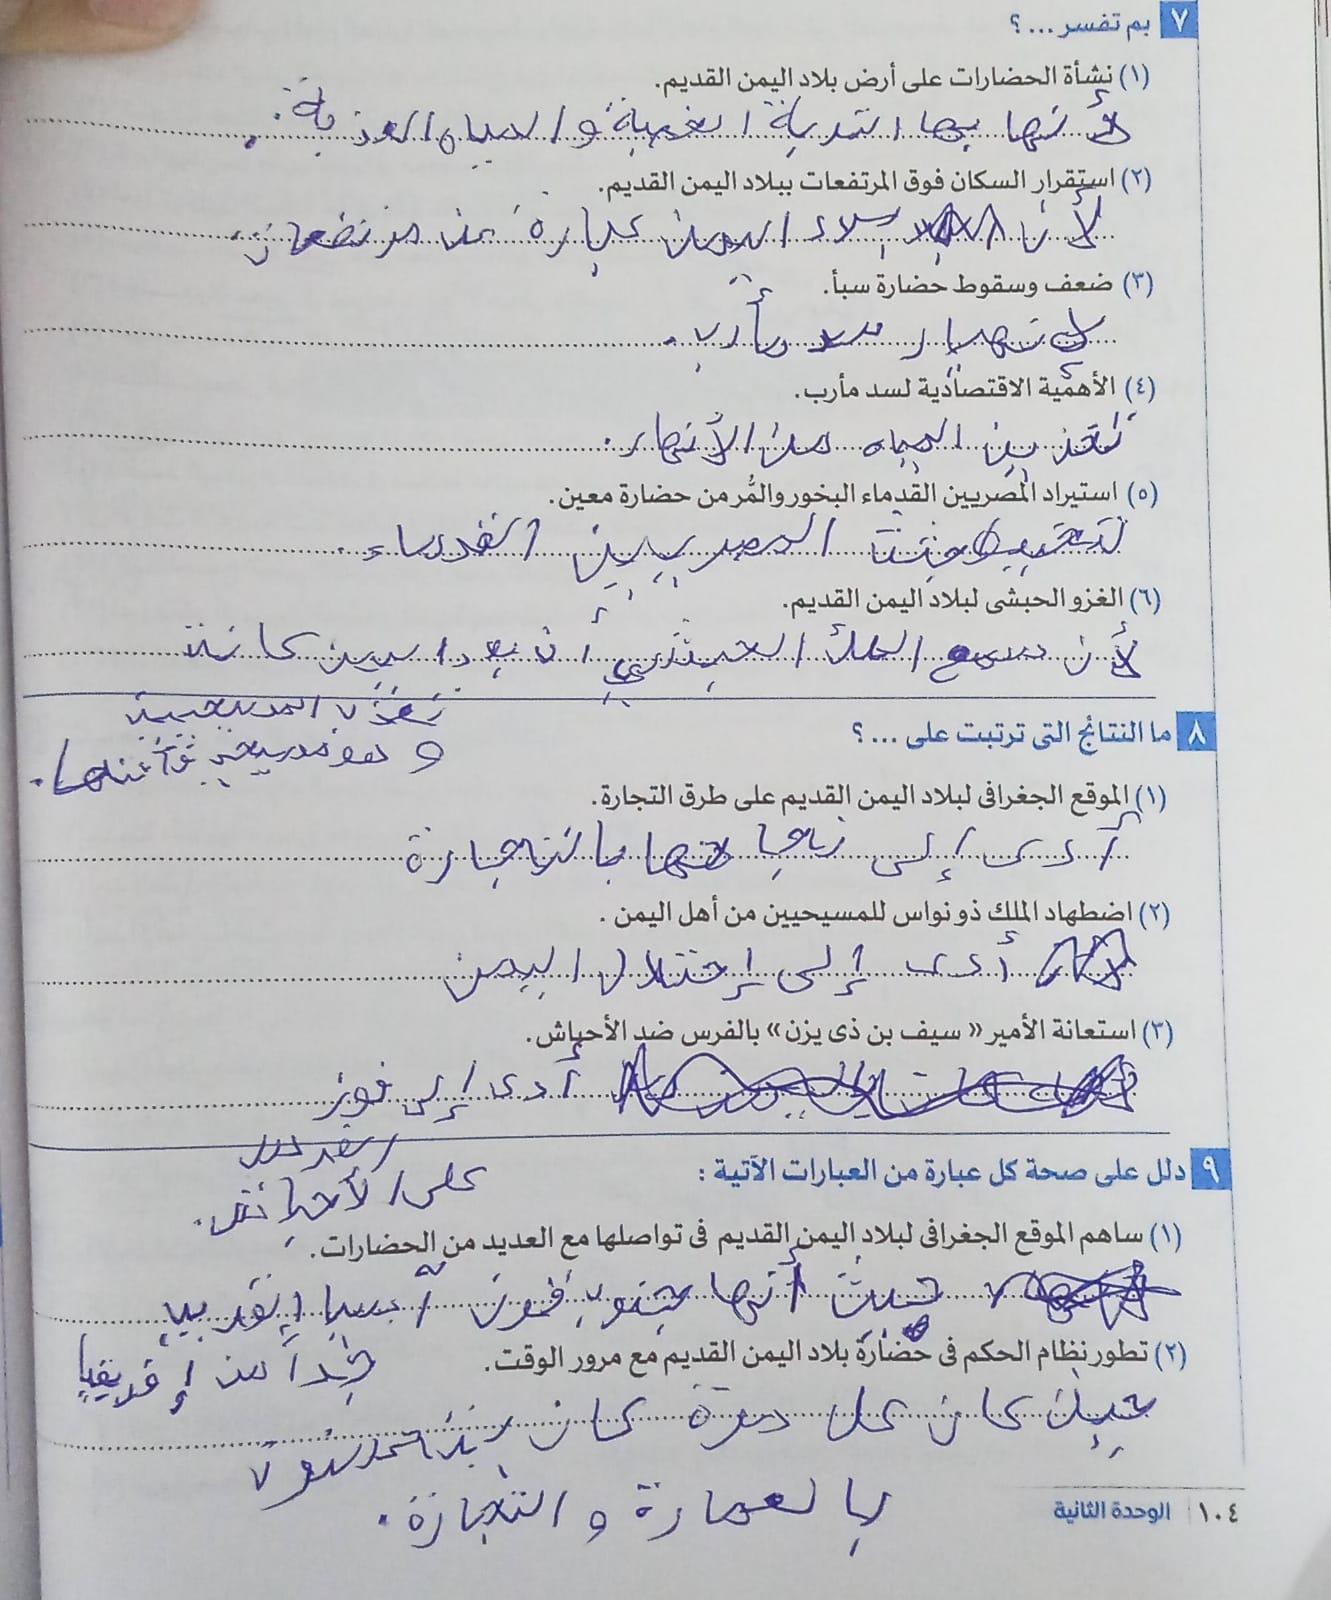 ٧ بم تفسر ... ؟
(١) نشأة الحضارات على أرض بلاد اليمن القديم.
لأنها بها التربة الخصبة والمياه العذبة.
(٢) استقرار السكان فوق المرتفعات ببلاد اليمن القديم.
لأن بلاد اليمن عبارة عن مرتفعات.
(٣) ضعف وسقوط حضارة سبأ.
لانهيار سد مأرب.
(٤) الأهمية الاقتصادية لسد مأرب.
تخزين المياه من الأنهار.
(٥) استيراد المصريين القدماء البخور والمُر من حضارة معين.
لتحنيط جثث المصريين القدماء.
(٦) الغزو الحبشى لبلاد اليمن القديم.
لأن سمع الملك الحبشي أن
كانت
المسيحية
و هو مسيحي
٨ ما النتائج التى ترتبت على ... ؟
(١) الموقع الجغرافى لبلاد اليمن القديم على طرق التجارة.
أدى إلى نجاحها بالتجارة
(٢) اضطهاد الملك ذو نواس للمسيحيين من أهل اليمن .
أدى إلى إحتلال اليمن
(٣) استعانة الأمير « سيف بن ذى يزن» بالفرس ضد الأحباش.
أدى إلى فوز
على الأحباش.
٩ دلل على صحة كل عبارة من العبارات الآتية :
(١) ساهم الموقع الجغرافى لبلاد اليمن القديم فى تواصلها مع العديد من الحضارات.
حيث أنها جنوب آسيا
جداً من إفريقيا
(٢) تطور نظام الحكم فى حضارة بلاد اليمن القديم مع مرور الوقت.
حيث كان كل مرة كان
بالعمارة و التجارة.
١٠٤ الوحدة الثانية